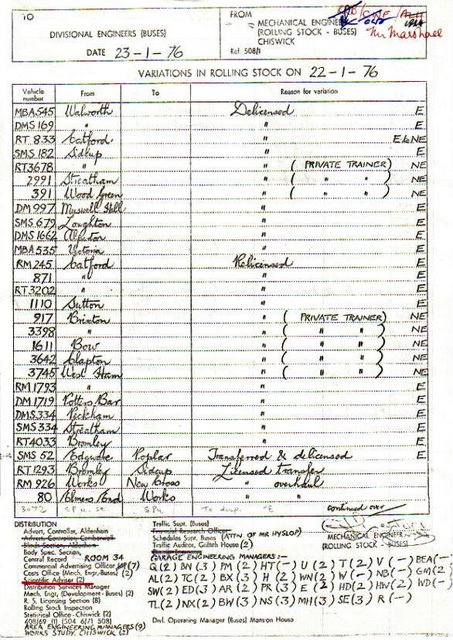 TO
DIVISIONAL ENGINEERS (BUSES)
DATE 23-1-76
FROM
MECHANICAL ENGINEER
(ROLLING STOCK - BUSES)
CHISWICK
Ref. 508/1
Mr Marshall
VARIATIONS IN ROLLING STOCK ON 22-1-76
Vehicle number From To Reason for variation
MBA545 Walworth Delicensed E
DMS 169 " " E
RT 833 Catford " E & NE
SMS 182 Sidcup " E
RT3678 " " (PRIVATE TRAINER) NE
2991 Streatham " ( " " ) NE
391 Wood Green " ( " " ) NE
DM 997 Muswell Hill " E
SMS 679 Loughton " E
DMS 1662 " E
MBA535 Victoria " E
RM 245 Catford Relicensed E
871 " " E
RT3202 " " E
1110 Sutton " E
917 Brixton " (PRIVATE TRAINER) NE
3398 " " ( " " ) NE
1611 Bow " ( " " ) NE
3642 Clapton " ( " " ) NE
3745 West Ham " ( " " ) NE
RM1793 " " E
DM 1719 Potters Bar " E
DMS 334 Peckham " E
SMS 334 Streatham " E
RT4033 Bromley " E
SMS 52 Edgware Poplar Transferred & delicensed E
RT1293 Bromley Sidcup Licensed transfer
RM 926 Works New Cross " overhaul
80 Elmers End Works " "
continued over
DISTRIBUTION
Advert. Controller, Aldenham
Body Spec. Section,
Central Record ROOM 34
Commercial Advertising Officer (7)
Costs Office (Mech. Engr. Buses) (2)
Scientific Adviser (2)
Distribution Services Manager
Mech. Engr. (Development - Buses) (2)
R. S. Licensing Section (8)
Rolling Stock Inspection
Statistical Office - Chiswick (2)
AREA ENGINEERING MANAGERS (9)
WORKS STUDY, CHISWICK (2)
Traffic Supt. (Buses)
Financial Research Officer
Schedules Supt. (Buses) (ATTN OF MR HYSLOP)
Traffic Auditor, Griffith House (2)
MECHANICAL ENGINEER
(ROLLING STOCK - BUSES)
GARAGE ENGINEERING MANAGERS :-
Q(2) BN(3) PM(2) HT(-) U(2) T(2) V(-) BEA(-)
AL(2) TC(2) BX(3) H(2) WN(2) W(-) NB(-) GM(2)
SW(2) ED(3) AR(2) PR(3) E(2) HD(2) HW(2) WD(-)
TL(2) NX(2) BW(3) NS(3) MH(3) SE(3) R(-)
Divl. Operating Manager (Buses) Mansion House